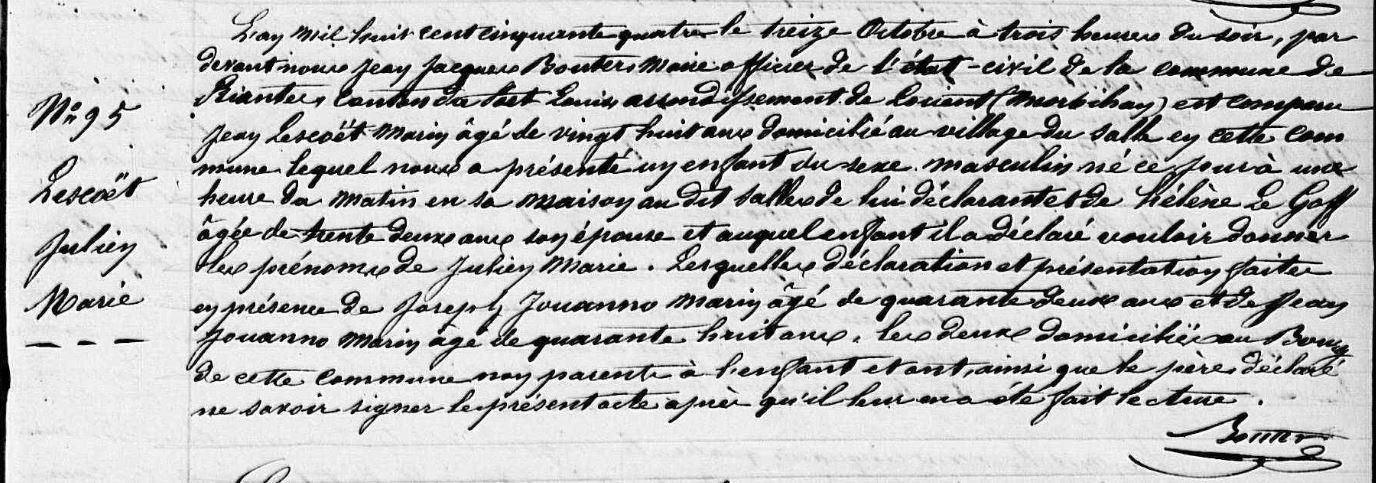 N° 95
Lescoët
Julien
Marie
L'an mil huit cent cinquante quatre le treize Octobre à trois heures du soir, par
devant nous Jean Jacques Bouter Maire officier de l'état-civil de la commune de
Riantec, canton du Port Louis arrondissement de Lorient (Morbihan) est comparu
Jean Lescoët Marin âgé de vingt huit ans domicilié au village du Salle en cette com
mune lequel nous a présenté un enfant du sexe masculin né ce jour à une
heure du matin en sa maison au dit Salle de lui déclarant et de Hélène Le Goff
âgée de trente deux ans son épouse et auquel enfant il a déclaré vouloir donner
les prénoms de Julien Marie. Lesquelles déclaration et présentation faites
en présence de Joseph Jouanno Marin âgé de quarante deux ans et de Jean
Jouanno Marin âgé de quarante huit ans, les deux domiciliés au Bourg
de cette commune non parents à l'enfant et ont, ainsi que le père déclaré
ne savoir signer le présent acte après qu'il leur en a été fait lecture.
Bouter